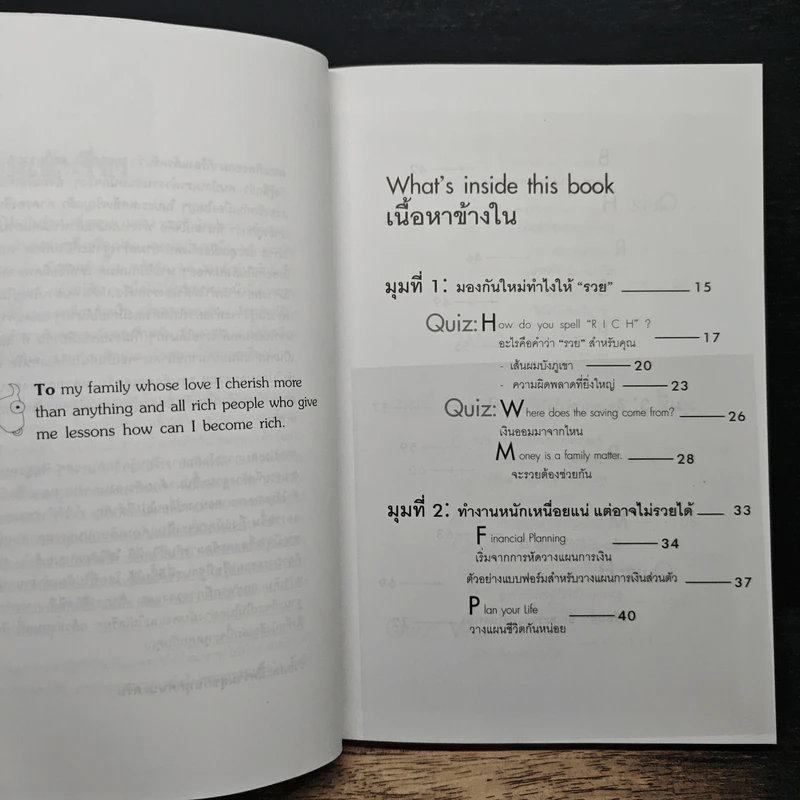 To my family whose love I cherish more
than anything and all rich people who give
me lessons how can I become rich.
What's inside this book
เนื้อหาข้างใน
มุมที่ 1: มองกันใหม่ทำไงให้ "รวย" 15
Quiz: How do you spell "R I C H" ?
อะไรคือคำว่า "รวย" สำหรับคุณ 17
- เส้นผมบังภูเขา 20
- ความผิดพลาดที่ยิ่งใหญ่ 23
Quiz: Where does the saving come from? 26
เงินออมมาจากไหน
Money is a family matter. 28
จะรวยต้องช่วยกัน
มุมที่ 2: ทำงานหนักเหนื่อยแน่ แต่อาจไม่รวยได้ 33
Financial Planning 34
เริ่มจากการหัดวางแผนการเงิน
ตัวอย่างแบบฟอร์มสำหรับวางแผนการเงินส่วนตัว 37
Plan your Life 40
วางแผนชีวิตกันหน่อย